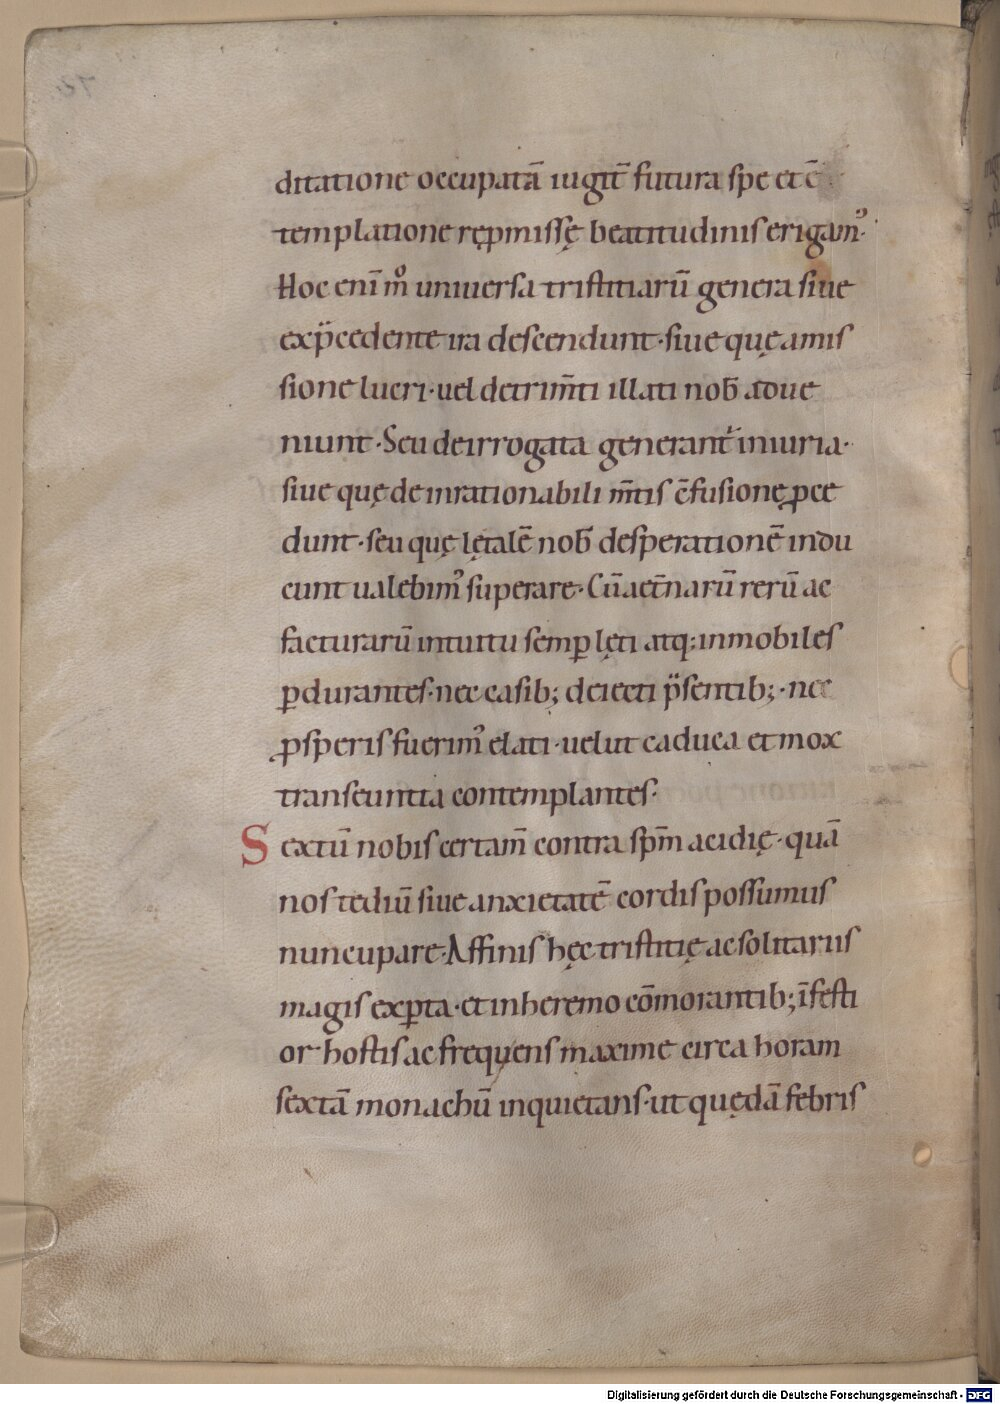 ditatione occupatā iugit̄ futura spe et c̄
templatione rep̲missę beatitudinis erigamꝰ·
Hoc enī mͦ uniuersa tristitiarū genera siue
exp̈cedente ira descendunt· siue quę amis
sione lucri· uel detrim̄ti illati nob̄ adue
niunt· Seu deirrogata generant᷑ iniuria·
siue quę de inrationabili m̄tis c̄fusione ꝓce
dunt· seu quę lętalē nob̄ desperationē indu
cunt ualebimꝰ superare· Cū aet̄narū rerū ac
facturarū intuitu semꝑ lęti atq; inmobiles
ꝑdurantes· nec casib; deiecti p̈sentib;· nec
ꝓsperis fuerimꝰ elati· uelut caduca et mox
transeuntia contemplantes·
Sextū nobis certam̄ contra sp̄m acidię· quā
nos tediū siue anxietatē cordis possumus
nuncupare· Affinis hęc tristitię ac solitariis
magis exꝑta· et in heremo cōmorantib; īfesti
or hostis ac frequens maxime circa horam
sextā monachū inquietans· ut quędā febris
Digitalisierung gefördert durch die Deutsche Forschungsgemeinschaft - DFG